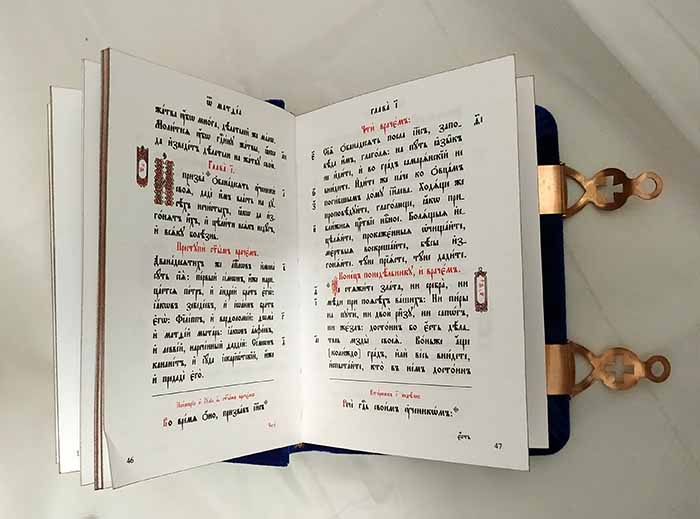 Ѿ матѳе́а
жа́тва ᲂу҆́бѡ мно́га, дѣ́лателей же ма́лѡ.
Моли́тесѧ ᲂу҆̀бо господи́нꙋ жа́твы, ꙗ҆́кѡ
да и҆зведе́тъ дѣ́латели на жа́твꙋ свою̀.
Глава̀ і҃.
И҆ призва̀ ѻ҆бана́десѧте ᲂу҆чн҃ки̑
своѧ̑, дадѐ и҆̀мъ вла́сть на дꙋ-
сѣ́хъ нечи́стыхъ, ꙗ҆́кѡ да и҆з-
го́нѧтъ и҆̀хъ, и҆ цѣли́ти всѧ́къ недꙋ́гъ
и҆ всѧ́кꙋ болѣ́знь.
Престꙋпѝ ст҃ы̑мъ врачє́мъ.
Двана́десѧтихъ же а҆пⷭ҇лѡвъ и҆мена̀
сꙋ́ть сїѧ̑: пе́рвый сі́мѡнъ, и҆́же нари-
ца́етсѧ пе́тръ, и҆ а҆ндре́й бра́тъ є҆гѡ̀:
і҆а́кѡвъ зеведе́евъ, и҆ і҆ѡа́ннъ бра́тъ
є҆гѡ̀: фїлі́ппъ, и҆ варѳоломе́й: ѳѡма̀
и҆ матѳе́й мыта́рь: і҆а́кѡвъ а҆лфе́овъ,
и҆ левве́й, нарече́нный ѳадде́й: сі́мѡнъ
канані́тъ, и҆ і҆ꙋ́да і҆скарїѡ́тскїй, и҆́же
и҆ предадѐ є҆го̀.
Во вре́мѧ ѻ҆́но, призва́въ і҆и҃съ
46
глава̀ і҃
Чтѝ врачє́мъ:
Сїѧ̑ ѻ҆бана́десѧте посла̀ і҆и҃съ, запо-
вѣ́да и҆̀мъ, глаго́лѧ: на пꙋ́ть ꙗ҆зы̑къ
не и҆ди́те, и҆ во гра́дъ самарѧ́нскїй не
вни́дите. И҆ди́те же па́че ко ѻ҆вца́мъ
поги́бшымъ до́мꙋ і҆и҃лева. Ходѧ́ще же
проповѣ́дꙋйте, глаго́люще, ꙗ҆́кѡ при-
бли́жисѧ црⷭ҇твїе нбⷭ҇ное. Болѧ́щыѧ и҆с-
цѣлѧ́йте, прокажє́нныѧ ѡ҆чища́йте,
мє́ртвыѧ воскреша́йте, бѣ́сы и҆з-
гонѧ́йте. тꙋ́не прїѧ́сте, тꙋ́не дади́те.
Коне́цъ понедѣ́льникꙋ, и҆ врачє́мъ.
Не стѧжи́те зла́та, ни сребра̀, ни
мѣ́ди при поѧсѣ́хъ ва́шихъ: ни пи́ры
на пꙋ́ть, ни двою̀ ри̑зꙋ, ни сапѡ́гъ,
ни жезла̀: досто́инъ бо є҆́сть дѣ́ла-
тель мзды̀ своеѧ̀. Во́ньже а҆́ще
[коли́ждо] гра́дъ, и҆лѝ ве́сь вни́дете,
и҆спыта́йте, кто̀ въ не́мъ досто́инъ
Речѐ гдⷭ҇ь свои̑мъ ᲂу҆ченикѡ́мъ:
є҆́сть
47